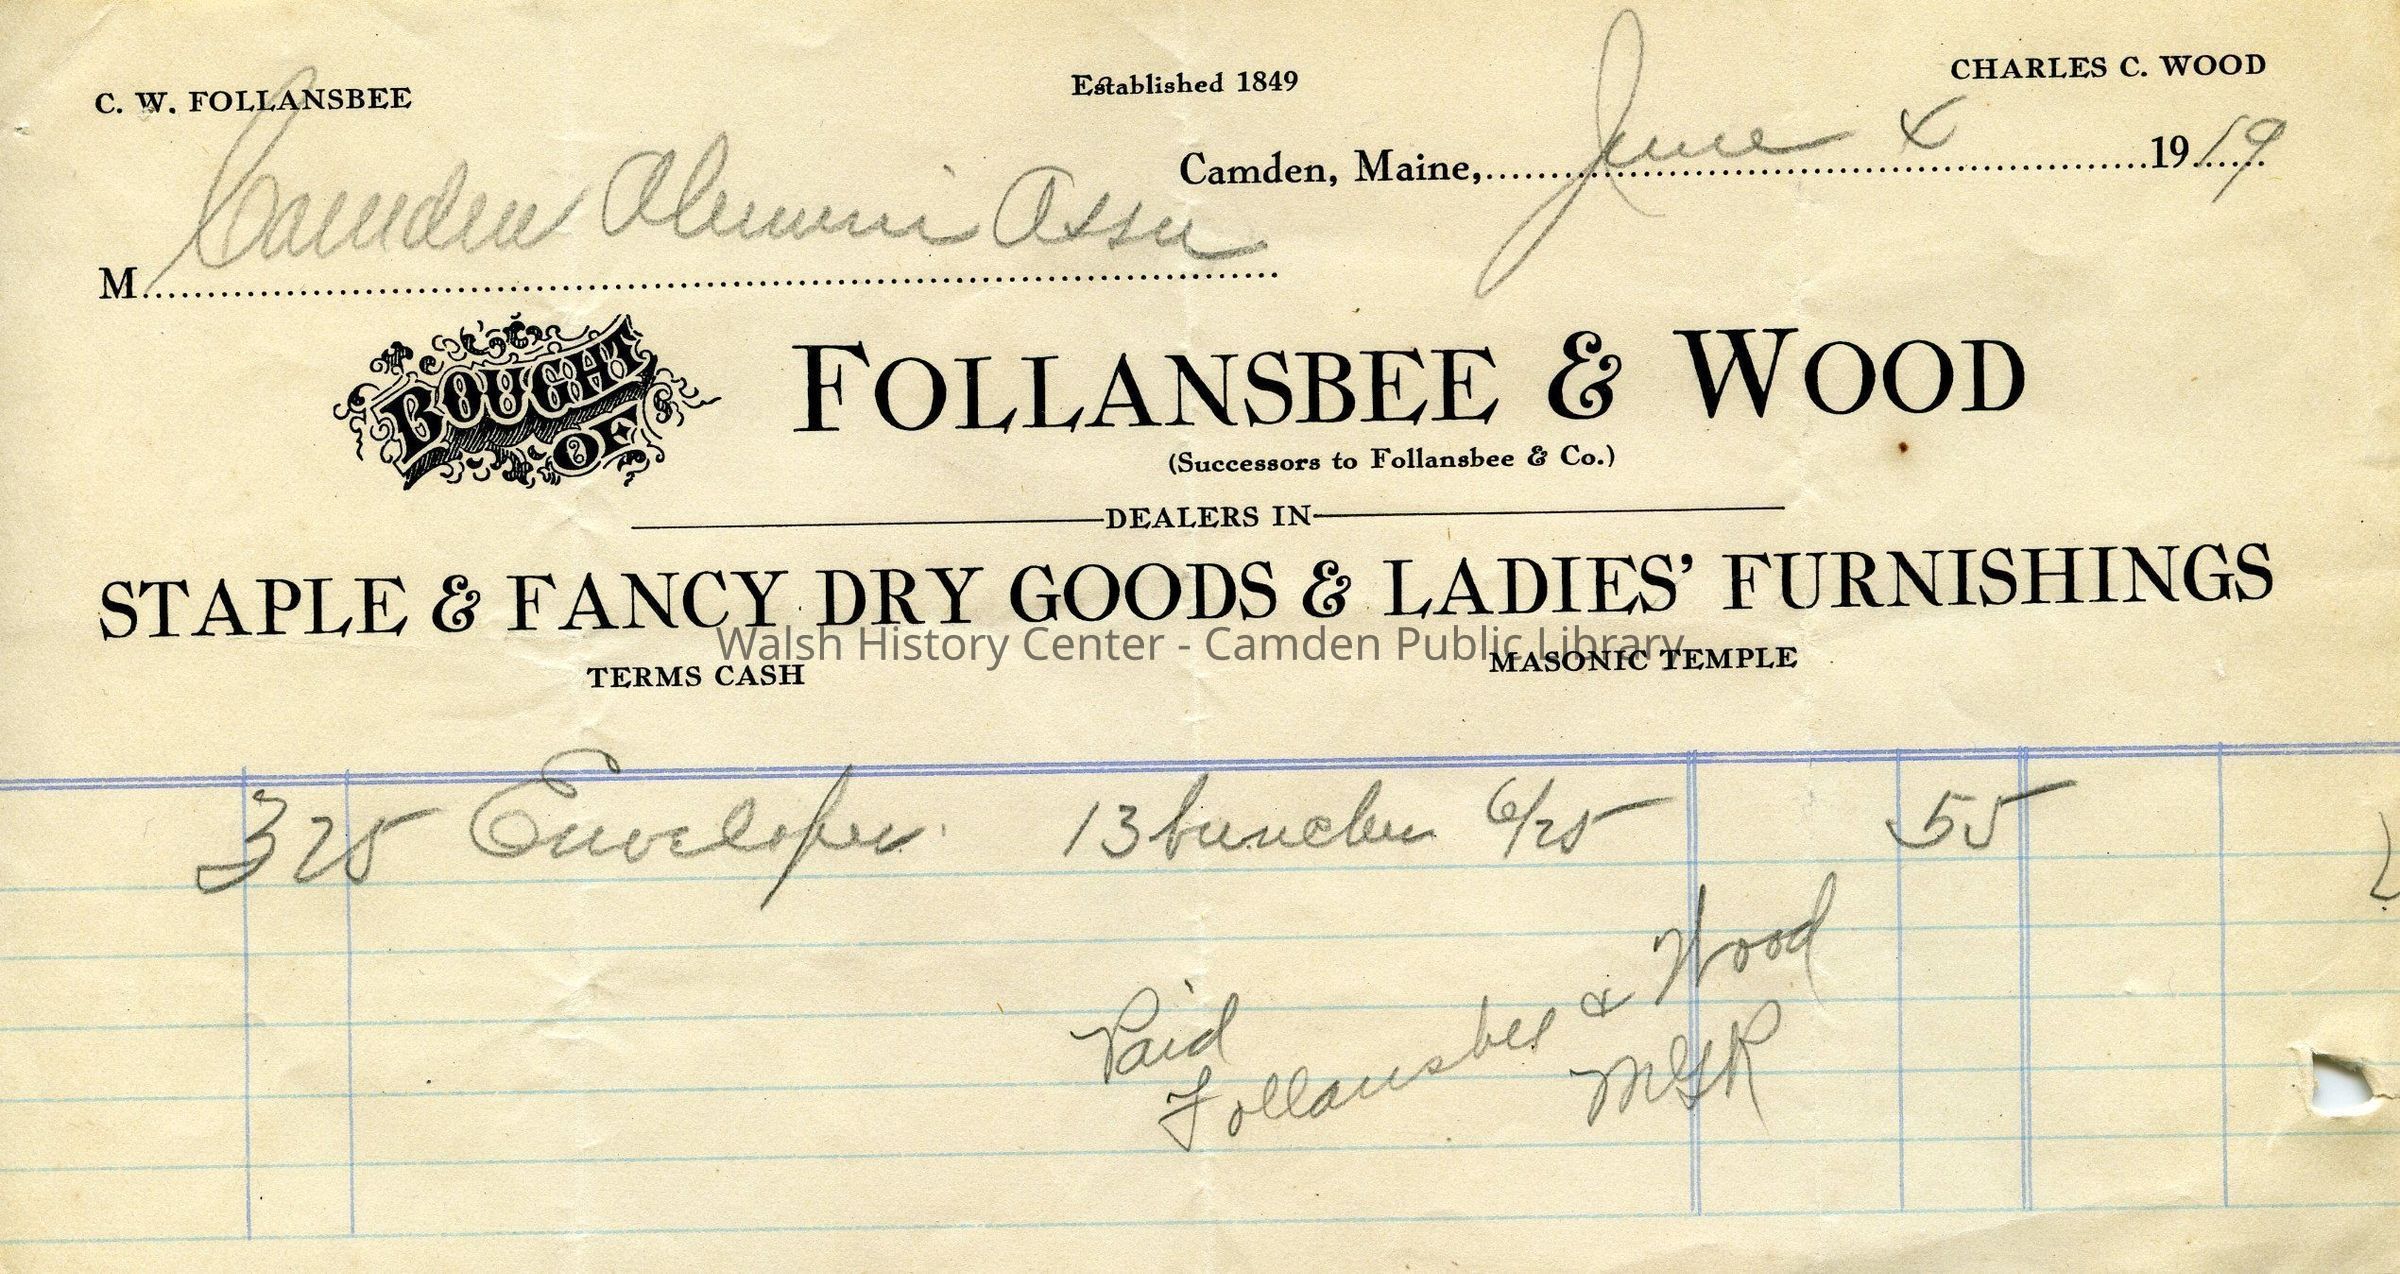 C. W. FOLLANSBEE
Established 1849
CHARLES C. WOOD
Camden, Maine, June 4 1919
M Camden Alumni Assn
BOUGHT OF
FOLLANSBEE & WOOD
(Successors to Follansbee & Co.)
DEALERS IN
STAPLE & FANCY DRY GOODS & LADIES' FURNISHINGS
Walsh History Center - Camden Public Library
TERMS CASH
MASONIC TEMPLE
325 Envelopes 13 bunches 6/25 55
Paid
Follansbee & Wood
MGR